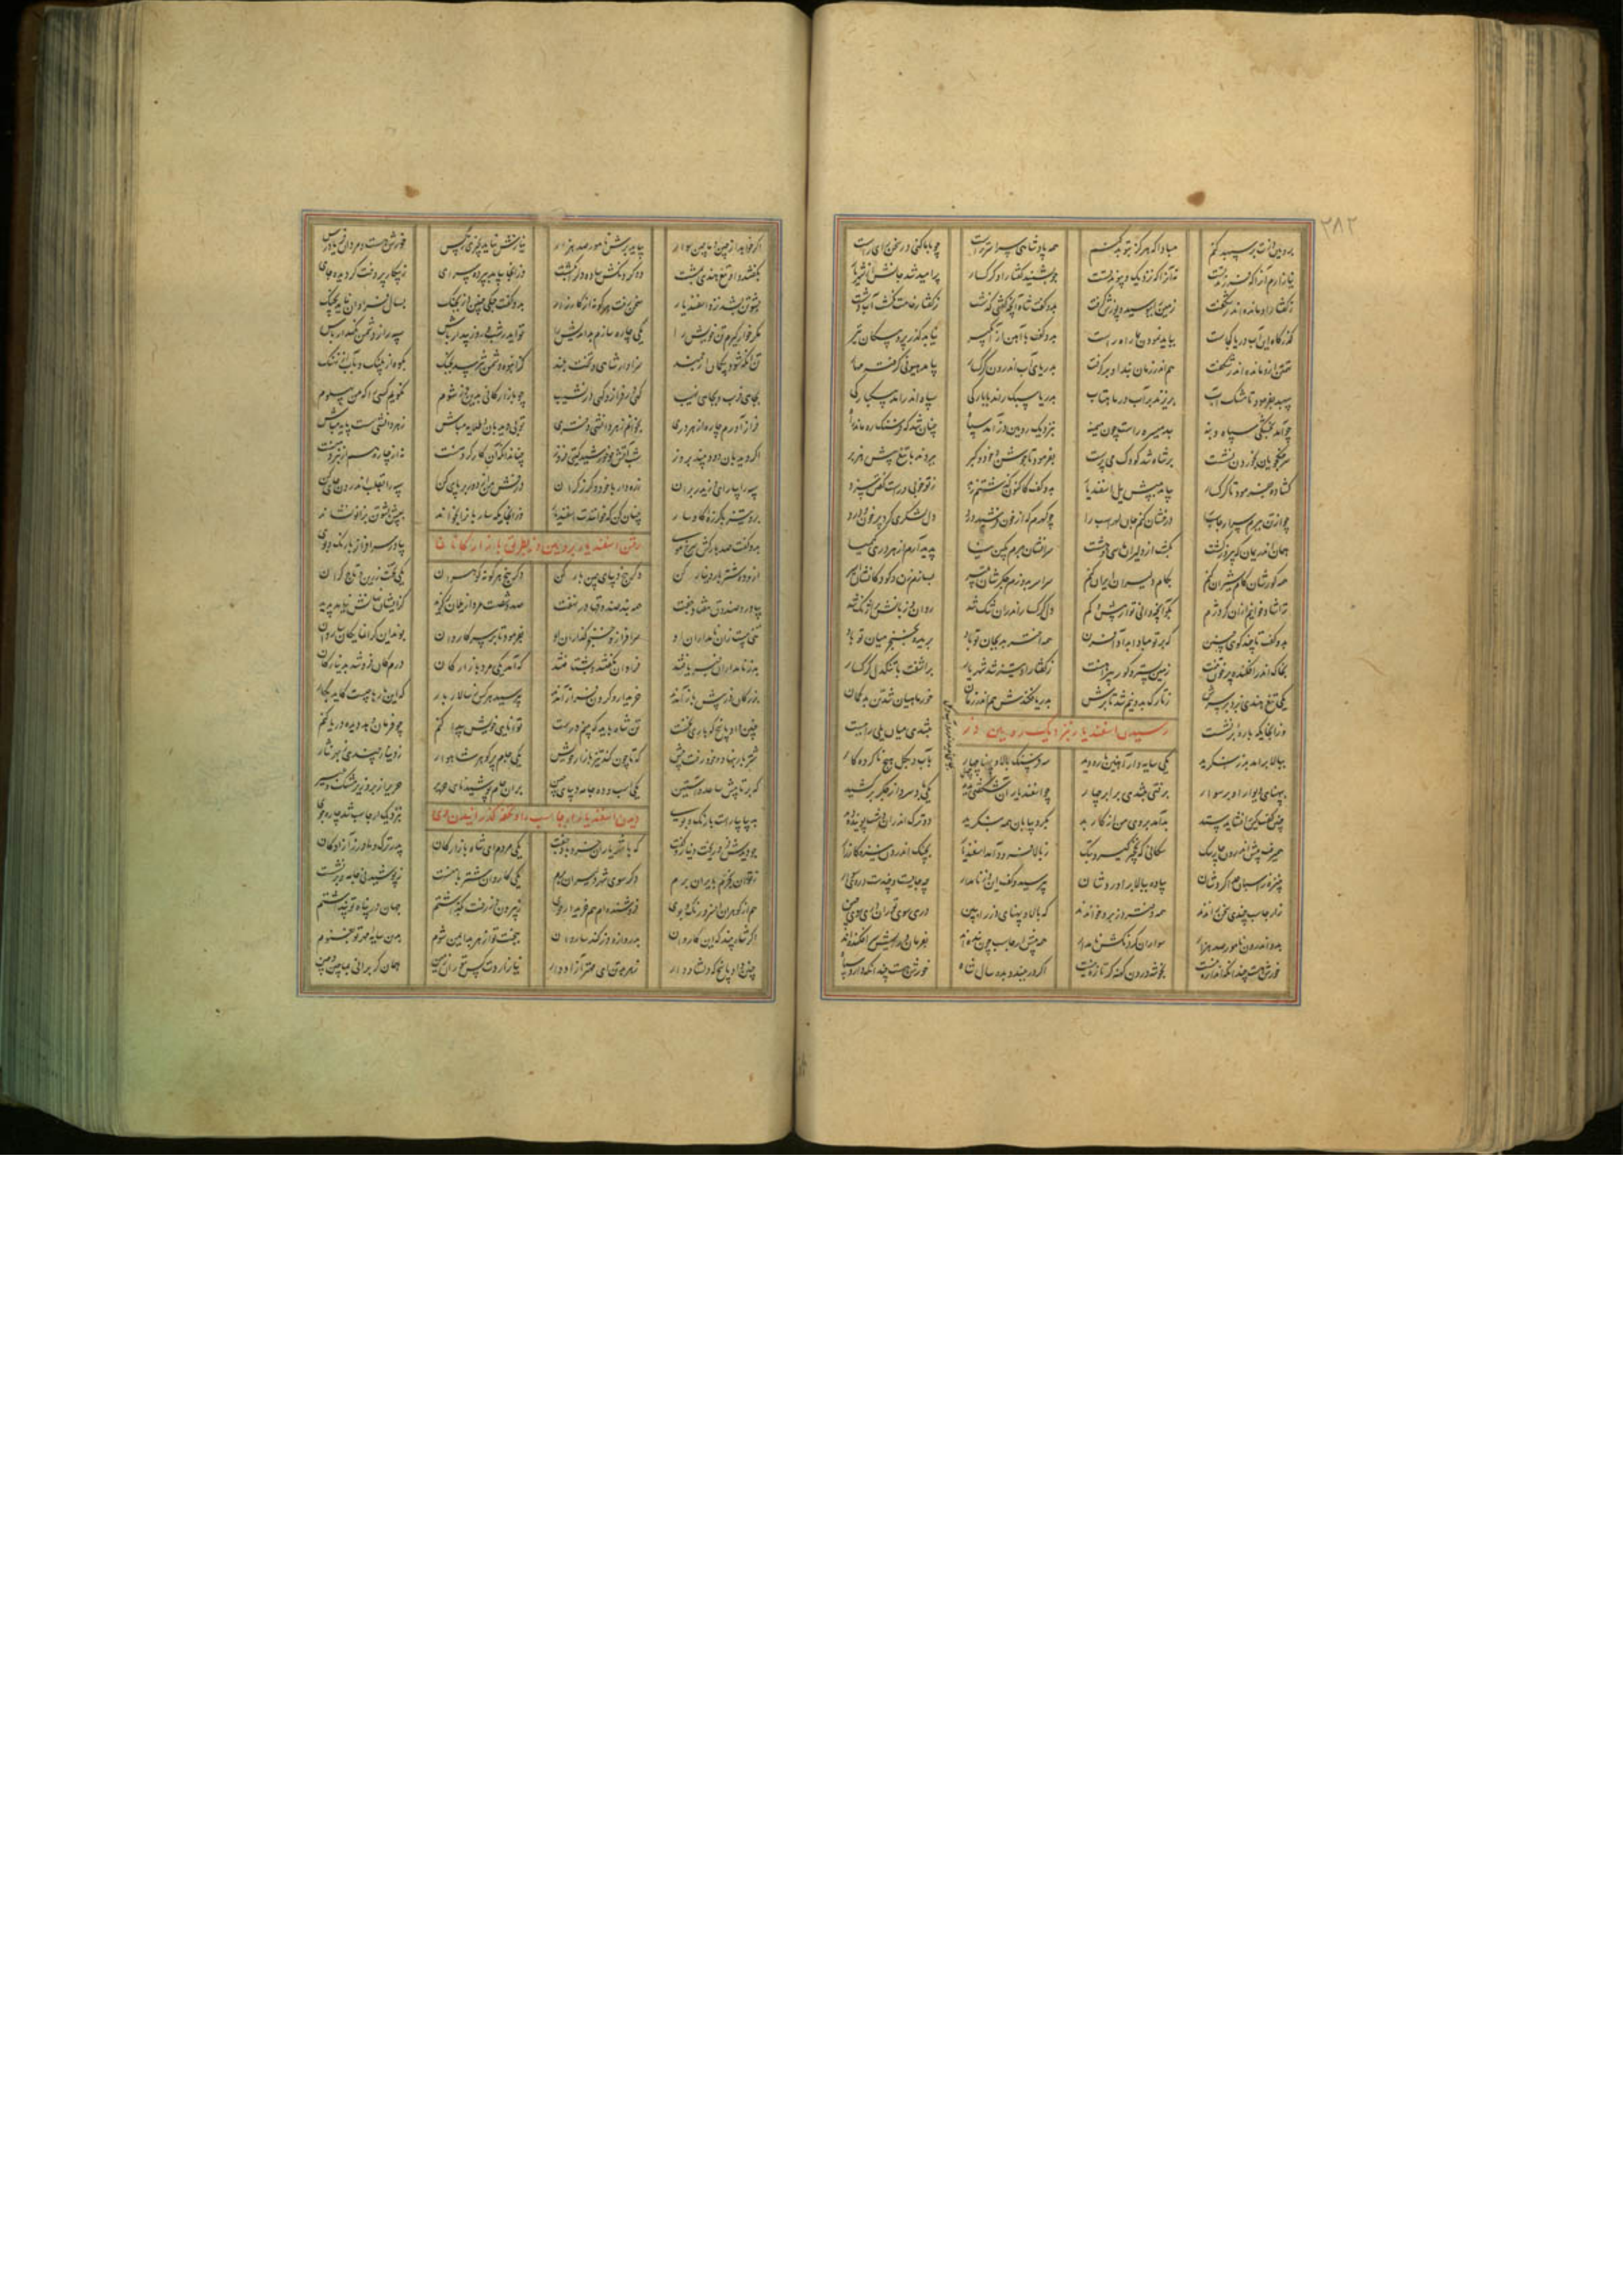 ۲۸۲
برویین دژت بر سپهبد کنم مبادا که هرگز بتو بد کنم همه پادشاهی سراسر تراست چو با ما کنی در سخن رای راست
نیازارم آنرا که فرزند تست نه آنرا که نزدیک و پیوند تست چو بشنید گفتار او گرکسار پر امید شد جانش
ز گفتار او ماند اندر شگفت زمین را ببوسید و پوزش گرفت بدو گفت شاه آنچه گفتی گذشت ز گفتار خامت نگشت آب دشت
گذرگاه این آب دریا کجاست بباید نمودن بما راه راست بدو گفت با آهن از آبگیر نیابد گذر پر و پیکان تیر
تهمتن ازو ماند اندر شگفت هم اندر زمان بند او برگرفت بدریای آب اندرون گرکسار بیامد هیونی گرفته مهار
سپهبد بفرمود تا مشک آب بریزند بر آب در ماهتاب بدریا سبک راند با بارگی سپاه اندر آمد بیکبارگی
چو آمد بخشکی سپاه و بنه بد میسره راست چون میمنه بنزدیک رویین دژ آمد سپاه چنان شد که فرسنگ ده ماند راه
سر جنگجویان بخوردن نشست بر شاه شد کودک می پرست بفرمود تا جوشن و خود و گبر ببردند با تیغ پیش هزبر
گشاده بفرمود تا گرکسار بیامد به پیش یل اسفندیار بدو گفت کاکنون گذشتی ز بد ز تو خوبی و راست گفتن سزد
چو از تن ببرم سر ارجاسب را درفشان کنم جان لهراسب را چو کهرم که از خون فرشیدورد دل لشکری کرد پر خون و درد
همان اندریمان که پیروز گشت بکشت از دلیران ما سی و هشت سرانشان ببرم بکین نیا پدید آرم از هر دری کیمیا
همه گورشان کام شیران کنم بکام دلیران ایران کنم سراسر بدوزم جگرشان بتیر بیارم زن و کودکانشان اسیر
ترا شاد خوانم ازین گر دژم بگو آنچه دانی تو از بیش و کم دل گرکسار اندران تنگ شد روان و زبانش پر آژنگ شد
بدو گفت تا چند گویی چنین که بر تو مبادا بداد آفرین همه اختر بد بجان تو باد بریده بخنجر میان تو باد
بخاک اندر افکنده پر خون تنت زمین بستر و گور پیراهنت ز گفتار او تیز شد شهریار برآشفت با تنگدل گرکسار
یکی تیغ هندی بزد بر سرش ز تارک بدو نیم شد تا برش بدریا فکندش هم اندر زمان خور ماهیان شد تن بدگمان
وزانجایگه باره را برنشست بتندی میان یلی را ببست
رسیدن اسفندیار بنزدیک رویین دز
ببالا برآمد بدز بنگرید یکی باره آهنین دید سه فرسنگ بالا و پهنا بآب و بگل هیچ ناکرده کار
بپهنای دیوار او بر سوار برفتی بتندی برابر چهار چو اسفندیار آن شگفتی بدید یکی باد سرد از جگر برکشید
چنین گفت کین را نشاید ستد بد آمد بروی من از کار بد بیابان همه بنگرید دو ترک اندران دشت پوینده دید
همیرفت پیش اندرون چار سگ سگانی که نخچیر گیرد بتگ ز بالا فرود آمد اسفندیار بچنگ اندرون نیزه کارزار
بنیزه ز اسبان جدا کردشان پیاده ببالا برآوردشان بپرسید و گفت این دز نامدار چه جایست و چندست در وی سوار
ز ارجاسب چندی سخن راندند همه دفتر دز برو خواندند که بالا و پهنای دز را ببین دری سوی توران دری سوی چین
بدو اندرون نامور صد هزار سواران گردنکش نامدار همه پیش ارجاسب چون بنده اند بفرمان و رایش سرافکنده اند
خورش هست چندانکه اندازه نیست بخوشه درون تازه نیست اگر در ببندد بده سال شاه خورش هست چندانکه دارد سپاه
اگر خواهد از چین و ماچین سوار بیاید برش نامور صد هزار نیازش نیاید بچیزی بکس خورش هست و مردان فریادرس
بگفتند و او تیغ هندی بمشت دو گردنکش ساده دل را بکشت وزانجا بیامد بپرده سرای پردخت کردند جای
پشوتن بشد نزد اسفندیار سخن رفت هر گونه از کارزار بدو گفت جنگی چنین دژ بجنگ بسال فراوان نیاید بچنگ
مگر خوار گیرم تن خویش را یکی چاره سازم بداندیش را تو ایدر شب و روز بیدار باش سپه را ز دشمن نگهدار باش
تن آنگه شود بیگمان ارجمند سزاوار شاهی و تخت بلند کز انبوه دشمن نترسد بجنگ بکوه از پلنگ و بآب از نهنگ
بجایی فریب و بجایی نهیب گهی بر فراز و گهی در نشیب چو بازارگانی بدین دز شوم نگویم کسی را که من پهلوم
فراز آورم چاره از هر دری بخوانم ز هر دانشی دفتری تو بی دیده بان و طلایه مباش ز هر دانشی سست پایه مباش
اگر دیده بان دود بیند بروز شب آتش چو خورشید گیتی فروز چنان دان که آن کار کرد منست نه از چاره هم نبرد منست
سپه را بیارای و زیدر بران زره دار با خود و گرز گران درفش من از دور بر پای کن سپه را بقلب اندرون جای کن
برو تیز با گرزه گاوسار چنان کن که خوانندت اسفندیار وزانجایگه ساربان را بخواند بپیش پشوتن بزانو نشاند
بدو گفت صد بارکش سرخ موی بیاور سرافراز با رنگ و بوی
رفتن اسفندیار برویین دز بطریق بازارگانان
ازو ده شتر بار دینار کن دگر پنج دیبای چین بار کن دگر پنج هر گونه گوهران یکی تخت زرین و تاج گران
بیاورد صندوق هشتاد جفت همه بند صندوقها در نهفت صد و شصت مرد از یلان گزید کزیشان نهانش نیاید پدید
تنی بیست از نامداران او سرافراز و خنجر گذاران او بفرمود تا بر سر کاروان بوند آن گرانمایگان ساروان
بدز نامداران خبر یافتند فراوان بگفتند و بشتافتند که آمد یکی مرد بازارگان درمگان فروشد بدینارگان
بزرگان دز پیش باز آمدند خریدار و گردن فراز آمدند بپرسید هر کس ز سالار بار کزین بارها چیست کاید بکار
چنین داد پاسخ که باری نخست تن شاه باید که بینم درست توانایی خویش پیدا کنم چو فرمان دهد دیده در پا کنم
شتر بار بنهاد و خود رفت پیش که تا چون کند تیز بازار خویش یکی جام پر گوهر شاهوار ز دینار چندی ز بهر نثار
که بر تافتش ساعد و آستین یکی اسب و ده جامه دیبای چین بران جام پوشیدنای حریر حریر از بر و زیر مشک و عبیر
با رنگ و بوی بنزدیک ارجاسب شد چاره جوی
دیدن اسفندیار ارجاسب را و تحفه گذرانیدن وی
چو دیدش فرو ریخت دینار و گفت که با شهریاران خرد باد جفت یکی مردم ای شاه بازارگان پدر ترک و مادر ز آزادگان
ز توران بخرم بایران برم دگر سوی برم یکی کاروان شتر با منست ز پوشیدنی جامه و بر نشست
هم از گوهر و افسر و رنگ و بوی فروشنده ام هم خریدار جوی ز بیرون دز رخت بگذاشتم جهان در پناه تو پنداشتم
اگر شاه بیند که این کاروان بدروازه دز کشد ساروان ببخت تو از هر بد ایمن شوم بدین سایه مهر تو بغنوم
چنین داد پاسخ که دل شاد دار ز هر بد تن ای مهتر آزاد دار نیازاردت کس بتوران زمین همان گر بماچین و چین